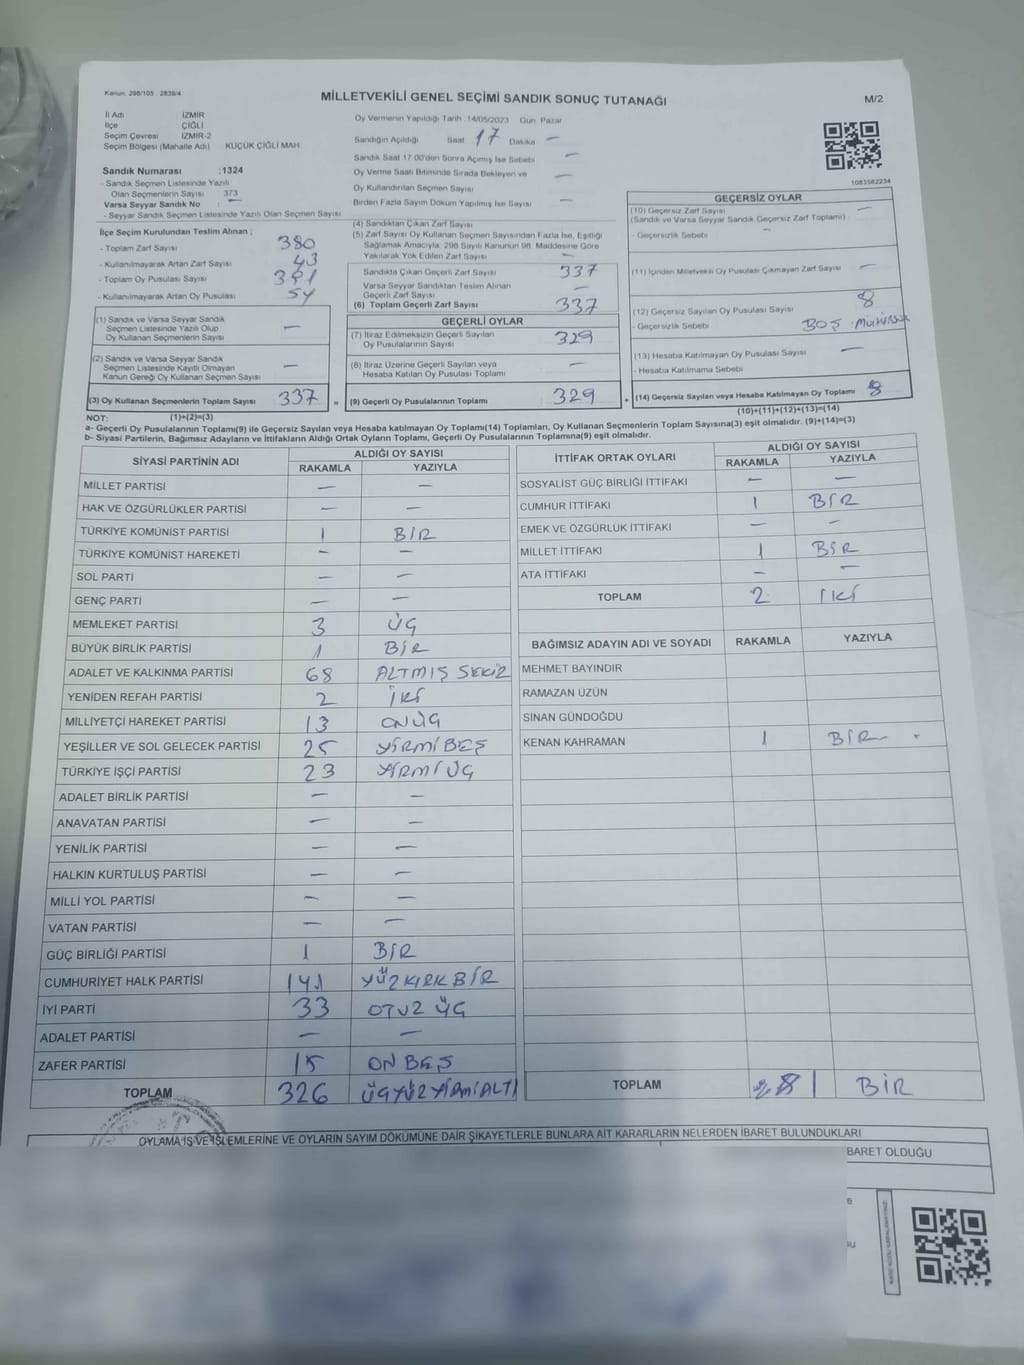 Kanun: 298/105 - 2839/4
MİLLETVEKİLİ GENEL SEÇİMİ SANDIK SONUÇ TUTANAĞI
M/2
İl Adı İZMİR
İlçe ÇİĞLİ
Seçim Çevresi İZMİR-2
Seçim Bölgesi (Mahalle Adı) KÜÇÜK ÇİĞLİ MAH
Sandık Numarası :1324
- Sandık Seçmen Listesinde Yazılı
Olan Seçmenlerin Sayısı 373
Varsa Seyyar Sandık No : —
- Seyyar Sandık Seçmen Listesinde Yazılı Olan Seçmen Sayısı
Oy Vermenin Yapıldığı Tarih :14/05/2023 Gün Pazar
Sandığın Açıldığı Saat 17 Dakika —
Sandık Saat 17:00'den Sonra Açılmış İse Sebebi —
Oy Verme Saati Bitiminde Sırada Bekleyen ve
Oy Kullandırılan Seçmen Sayısı —
Birden Fazla Sayım Döküm Yapılmış İse Sayısı —
1083582234
İlçe Seçim Kurulundan Teslim Alınan ;
- Toplam Zarf Sayısı 380
- Kullanılmayarak Artan Zarf Sayısı 43
- Toplam Oy Pusulası Sayısı
- Kullanılmayarak Artan Oy Pusulası 54
(1) Sandık ve Varsa Seyyar Sandık
Seçmen Listesinde Yazılı Olup
Oy Kullanan Seçmen Sayısı —
(2) Sandık ve Varsa Seyyar Sandık
Seçmen Listesinde Kayıtlı Olmayan
Kanun Gereği Oy Kullanan Seçmen Sayısı —
(3) Oy Kullanan Seçmenlerin Toplam Sayısı 337 =
(4) Sandıktan Çıkan Zarf Sayısı
(5) Zarf Sayısı Oy Kullanan Seçmen Sayısından Fazla İse, Eşitliği
Sağlamak Amacıyla, 298 Sayılı Kanunun 98. Maddesine Göre
Yakılarak Yok Edilen Zarf Sayısı —
Sandıkta Çıkan Geçerli Zarf Sayısı 337
Varsa Seyyar Sandıktan Teslim Alınan
Geçerli Zarf Sayısı —
(6) Toplam Geçerli Zarf Sayısı 337
GEÇERLİ OYLAR
(7) İtiraz Edilmeksizin Geçerli Sayılan
Oy Pusulalarının Sayısı 329
(8) İtiraz Üzerine Geçerli Sayılan veya
Hesaba Katılan Oy Pusulası Toplamı —
(9) Geçerli Oy Pusulalarının Toplamı 329 +
GEÇERSİZ OYLAR
(10) Geçersiz Zarf Sayısı —
(Sandık ve Varsa Seyyar Sandık Geçersiz Zarf Toplamı)
- Geçersizlik Sebebi —
(11) İçinden Milletvekili Oy Pusulası Çıkmayan Zarf Sayısı —
(12) Geçersiz Sayılan Oy Pusulası Sayısı 8
- Geçersizlik Sebebi BOŞ
(13) Hesaba Katılmayan Oy Pusulası Sayısı —
- Hesaba Katılmama Sebebi
(14) Geçersiz Sayılan veya Hesaba Katılmayan Oy Toplamı 8
NOT: (1)+(2)=(3) (10)+(11)+(12)+(13)=(14)
a- Geçerli Oy Pusulalarının Toplamı(9) ile Geçersiz Sayılan veya Hesaba katılmayan Oy Toplamı(14) Toplamları, Oy Kullanan Seçmenlerin Toplam Sayısına(3) eşit olmalıdır. (9)+(14)=(3)
b- Siyasi Partilerin, Bağımsız Adayların ve İttifakların Aldığı Ortak Oyların Toplamı, Geçerli Oy Pusulalarının Toplamına(9) eşit olmalıdır.
SİYASİ PARTİNİN ADI ALDIĞI OY SAYISI
RAKAMLA YAZIYLA
MİLLET PARTİSİ — —
HAK VE ÖZGÜRLÜKLER PARTİSİ — —
TÜRKİYE KOMÜNİST PARTİSİ 1 BİR
TÜRKİYE KOMÜNİST HAREKETİ — —
SOL PARTİ — —
GENÇ PARTİ — —
MEMLEKET PARTİSİ 3 ÜÇ
BÜYÜK BİRLİK PARTİSİ 1 BİR
ADALET VE KALKINMA PARTİSİ 68 ALTMIŞ SEKİZ
YENİDEN REFAH PARTİSİ 2 İKİ
MİLLİYETÇİ HAREKET PARTİSİ 13 ONÜÇ
YEŞİLLER VE SOL GELECEK PARTİSİ 25 YİRMİ BEŞ
TÜRKİYE İŞÇİ PARTİSİ 23 YİRMİ ÜÇ
ADALET BİRLİK PARTİSİ — —
ANAVATAN PARTİSİ — —
YENİLİK PARTİSİ — —
HALKIN KURTULUŞ PARTİSİ — —
MİLLİ YOL PARTİSİ — —
VATAN PARTİSİ — —
GÜÇ BİRLİĞİ PARTİSİ 1 BİR
CUMHURİYET HALK PARTİSİ 141 YÜZ KIRK BİR
İYİ PARTİ 33 OTUZ ÜÇ
ADALET PARTİSİ — —
ZAFER PARTİSİ 15 ON BEŞ
TOPLAM 326 ÜÇYÜZ YİRMİ ALTI
İTTİFAK ORTAK OYLARI ALDIĞI OY SAYISI
RAKAMLA YAZIYLA
SOSYALİST GÜÇ BİRLİĞİ İTTİFAKI — —
CUMHUR İTTİFAKI 1 BİR
EMEK VE ÖZGÜRLÜK İTTİFAKI — —
MİLLET İTTİFAKI 1 BİR
ATA İTTİFAKI — —
TOPLAM 2 İKİ
BAĞIMSIZ ADAYIN ADI VE SOYADI RAKAMLA YAZIYLA
MEHMET BAYINDIR
RAMAZAN ÜZÜN
SİNAN GÜNDOĞDU
KENAN KAHRAMAN 1 BİR
TOPLAM 1 BİR
OYLAMA İŞ VE İŞLEMLERİNE VE OYLARIN SAYIM DÖKÜMÜNE DAİR ŞİKAYETLERLE BUNLARA AİT KARARLARIN NELERDEN İBARET BULUNDUKLARI
BARET OLDUĞU